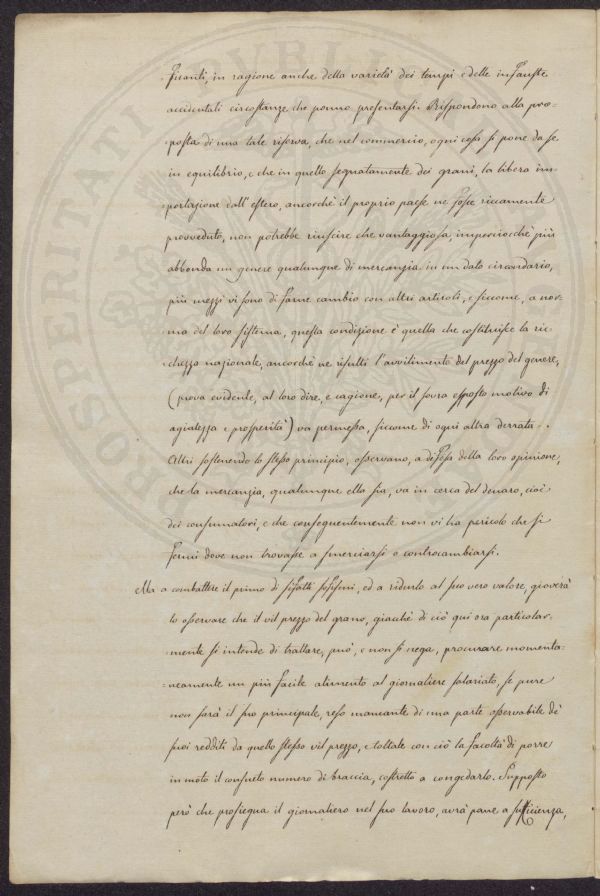 -ficanti, in ragione anche della varietà dei tempi e delle infauste
accidentali circostanze che ponno presentarsi. Rispondono alla pro=
=posta di una tale riserva, che nel commercio, ogni cosa si pone da se
in equilibrio, e che in quello segnatamente dei grani, la libera im=
=portazione dall'estero, ancorchè il proprio paese ne fosse riccamente
provveduto, non potrebbe riuscire che vantaggiosa, imperciocchè più
abbonda un genere qualunque di mercanzia in un dato circondario,
più mezzi vi sono di farne cambio con altri articoli, e siccome, a nor=
=ma del loro sistema, questa condizione è quella che costituisce la ric=
=chezza nazionale, ancorchè ne risulti l'avvilimento del prezzo del genere,
(prova evidente, al loro dire, e cagione, per il sovra esposto motivo di
agiatezza e prosperità) va permessa, siccome di ogni altra derrata.
Altri sostenendo lo stesso principio, osservano, a difesa della loro opinione,
che la mercanzia, qualunque ella sia, va in cerca del denaro, cioè
dei consumatori, e che conseguentemente non vi ha pericolo che si
fermi dove non trovasse a smerciarsi o controcambiarsi.
Ma a combattere il primo di sifatti sofismi, ed a ridurlo al suo vero valore, gioverà
lo osservare che il vil prezzo del grano, giacchè di ciò qui ora particolar=
=mente si intende di trattare, può, e non si nega, procurare momenta=
=neamente un più facile alimento al giornaliere salariato, se pure
non sarà il suo principale, reso mancante di una parte osservabile de'
suoi redditi da quello stesso vil prezzo, e toltale con ciò la facoltà di porre
in moto il consueto numero di braccia, costretto a congedarlo. Supposto
però che prosiegua il giornaliero nel suo lavoro, avrà pane a sufficienza,
PROSPERITATI PUBLICAE